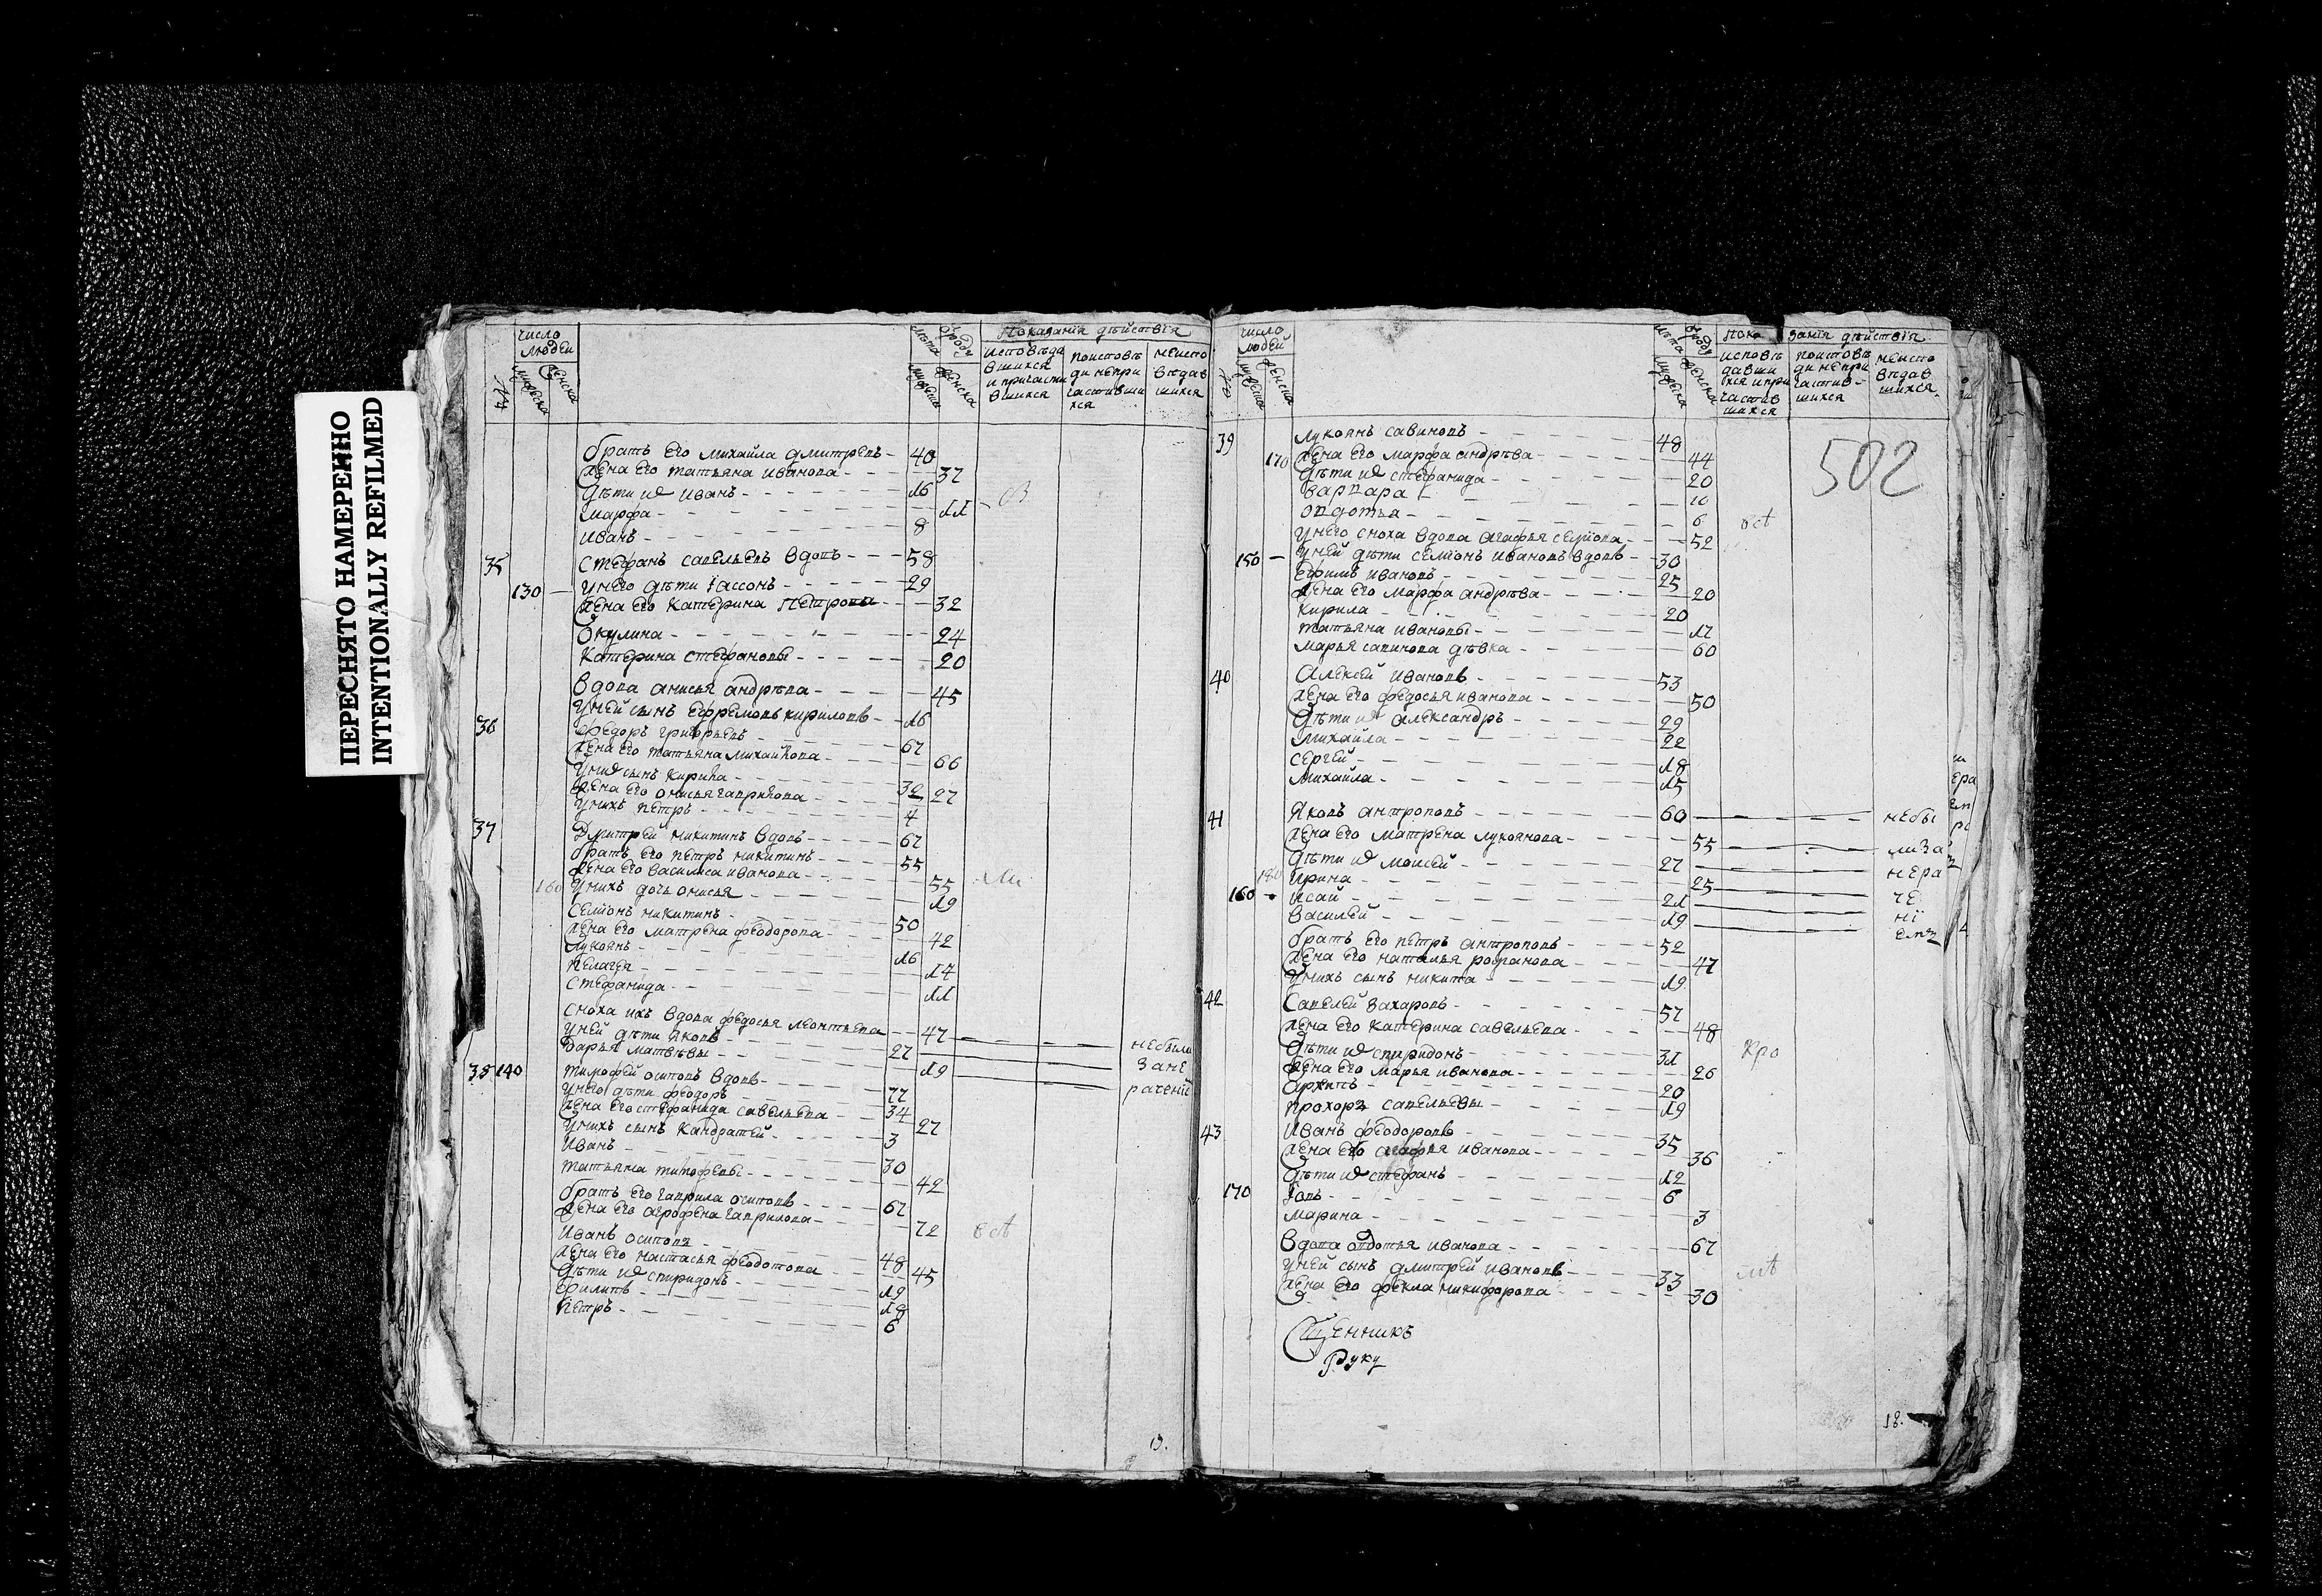 ПЕРЕСНЯТО НАМЕРЕННО
INTENTIONALLY REFILMED
число людей
мужеска
женска
лѣта
мужеска
женска
Показания дѣиствїя
исповѣдавшихся и причастившихся
по исповѣди непричастившихся
неисповѣдавшихся
братъ его михаила дмитревъ 40
жена его татьяна иванова 37
дѣти их иванъ 16
марфа 11
иванъ 8
35 стефанъ савельевъ вдовъ 58
130 у него дѣти Iассонъ 29
жена его катерина петрова 32
Окулина 24
катерина стефановы 20
вдова анисья андрѣева 45
у ней сынъ ефремовъ кириловъ 16
36 федоръ григорьевъ 67
жена его татьяна михаилова 66
у них сынъ кирила 32
жена его онисья гаврилова 27
у нихъ петръ 4
37 Дмитрей никитинъ вдовъ 67
братъ его петръ никитинъ 55
жена его василиса иванова 55
160 у нихъ дочь онисья 19
семїонъ никитинъ 50
жена его матрена феодорова 42
лукоянъ 16
пелагея 14
стефанида 11
сноха ихъ вдова федосья леонтьева 47 небыли
у ней дѣти яковъ 27 зане
дарья матвѣевы 19 рачениї
38 140 тимофей осиповъ вдовъ 77
у него дѣти феодоръ 34
жена его стефанида савельева 27
у нихъ сынъ кандратей 3
иванъ 30
татьяна тимофевы 42
братъ его гаврила осиповъ 67
жена его агрофена гаврилова 72
иванъ осиповъ 48
жена его настасья феодотова 45
дѣти их спиридонъ 19
филипъ 18
петръ 6
13.
число людей
мужеска
женска
лѣта
мужеска
женска
Показания дѣиствїя
исповѣдавшихся и причастившихся
по исповѣди непричастившихся
неисповѣдавшихся
502
39 лукоянъ савиновъ 48
170 жена его марфа андрѣва 44
дѣти их стефанида 20
варвара 10
овдотья 6
у него сноха вдова агафья семїова 52
150 у ней дѣти семїонъ ивановъ вдовъ 30
ефимъ ивановъ 25
жена его марфа андрѣва 20
кирила 20
татьяна ивановы 17
марья савинова дѣвка 60
40 Алексей ивановъ 53
жена его федосья иванова 50
дѣти их александръ 29
михаила 22
сергей 18
михаила 15
41 яковъ антроповъ 60 небы
жена его матрена лукоянова 55 лиза
дѣти их моисей 27 нера
180 ирина 25 че
160 исай 21 нї
василей 19 емъ
братъ его петръ антроповъ 52
жена его наталья романова 47
у нихъ сынъ никита 19
42 Савелей захаровъ 57
жена его катерина савельева 48
дѣти их спиридонъ 31
жена его марья иванова 26
архипъ 20
прохоръ савельевы 19
43 иванъ феодоровъ 35
жена его агафья иванова 36
дѣти их стефанъ 12
170 Iовъ 6
марина 3
вдова овдотья иванова 67
у ней сынъ дмитрей ивановъ 33
жена его фекла никифорова 30
Сщенникъ
Руку
18.